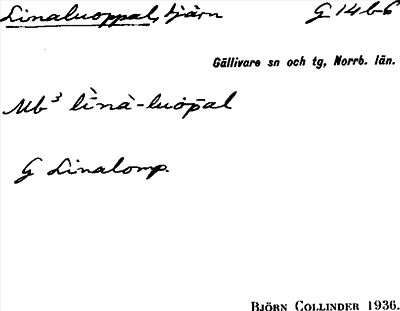 Linaluoppal, tjärn G 14b6
Gällivare sn och tg, Norrb. län.
Mb³ lı̄̀nà-luòp̄al
G Linalomp.
BJÖRN COLLINDER 1936.